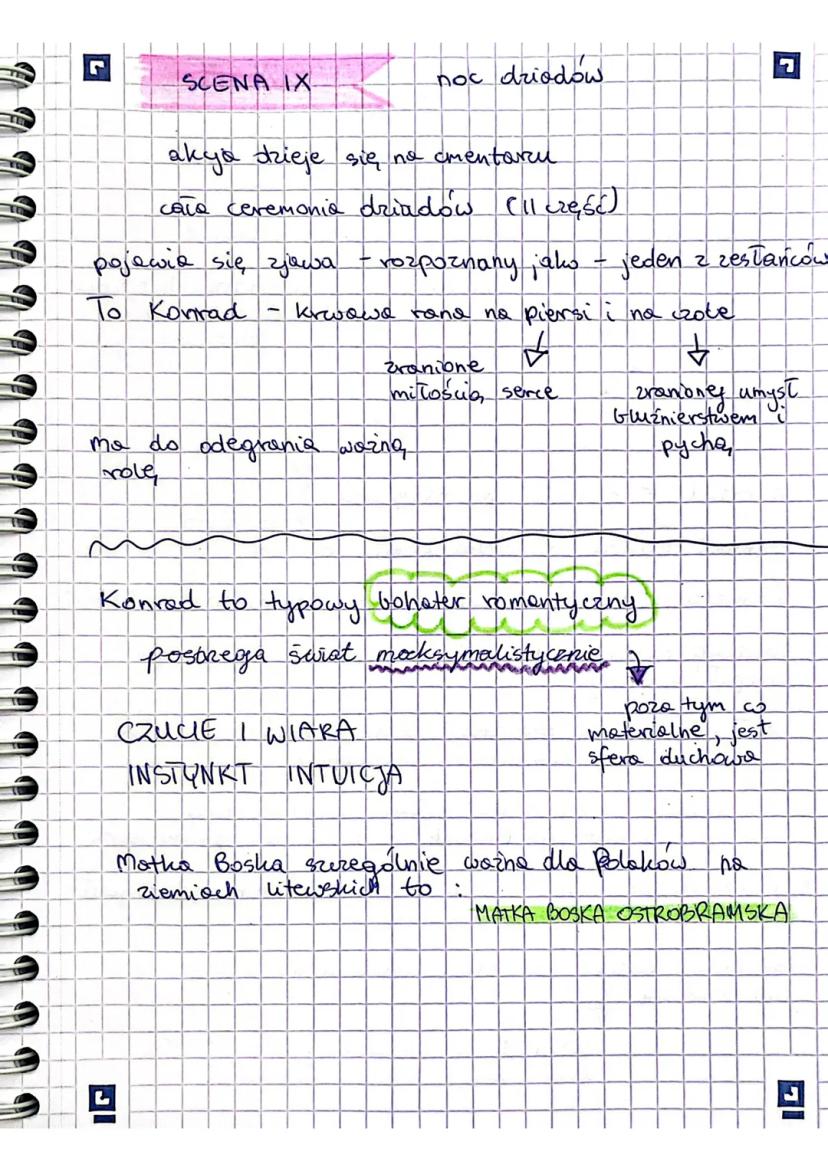 SCENA IX noc dziadów
akcja dzieje się na cmentarzu
cała ceremonia dziadów (II część)
pojawia się zjawa - rozpoznany jako - jeden z zesłańców
To Konrad - krwawa rana na piersi i na czole
zranione
miłością serce
zranionej umysł
bluźnierstwem i
pychą
ma do odegrania ważną
rolę
Konrad to typowy bohater romantyczny
postrzega świat maksymalistycznie
poza tym co
materialne, jest
sfera duchowa
CZUCIE I WIARA
INSTYNKT INTUICJA
Matka Boska szczególnie ważna dla Polaków na
ziemiach litewskich to :
MATKA BOSKA OSTROBRAMSKA